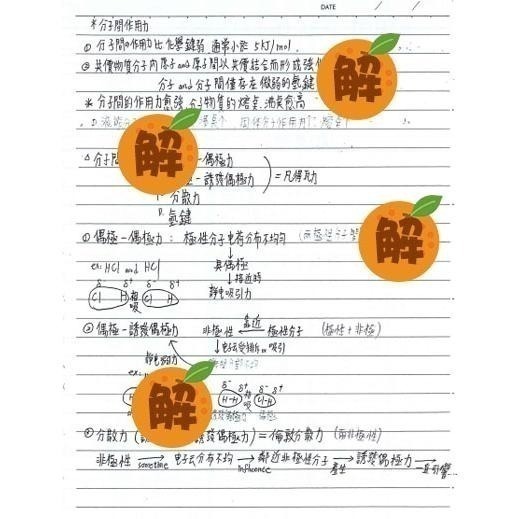 DATE / /
*分子間作用力
① 分子間的作用力比化學鍵弱 通常小於 5 kJ/mol.
② 共價物質分子內原子and原子間以共價結合而形成強
分子and分子間僅存在微弱的氫鍵
* 分子間的作用力愈強,分子物質的熔點、沸點愈高
解
解
解
解
△分子間
-偶極力
-誘發偶極力
=凡得瓦力
分散力
D. 氫鍵
① 偶極-偶極力: 極性分子電荷分布不均勻 (兩極性分子
ex: HCl and HCl 具偶極
↓接近時
δ- δ+ δ- δ+ 靜電吸引力
Cl H 相吸 Cl H
② 偶極-誘發偶極力 非極性 靠近 極性分子 (極性+非極)
↓電子雲受排斥or吸引
靜電吸力
ex:
δ- δ+ δ- δ+
H-H 相吸 Cl-H
③ 分散力 誘發偶極力)=倫敦分散力 (兩非極性)
非極性 → sometime 電子雲分布不均 → influence 鄰近非極性分子 → 產生 誘發偶極力